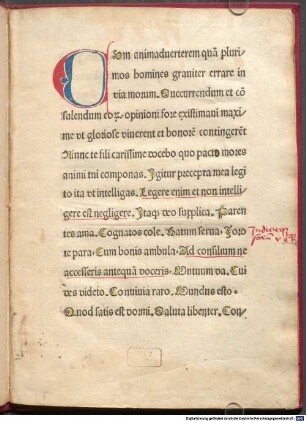 Cum animaduerterem quã pluri-
mos homines grauiter errare in
via morum. Succurrendum et cõ
sulendum eoꝝ opinioni fore existimaui maxi
me vt gloriose viuerent et honorẽ contingerẽt
Nunc te fili carissime docebo quo pacto mores
animi tui componas. Igitur precepta mea legi
to ita vt intelligas. Legere enim et non intelli
gere est negligere. Itaqꝫ deo supplica. Paren
tes ama. Cognatos cole. Datum serua. Foro
te para. Cum bonis ambula. Ad consilium ne
accesseris antequã voceris. Mutuum da. Cui
des videto. Conuiuia raro. Mundus esto.
Quod satis est dormi. Saluta libenter. Con-